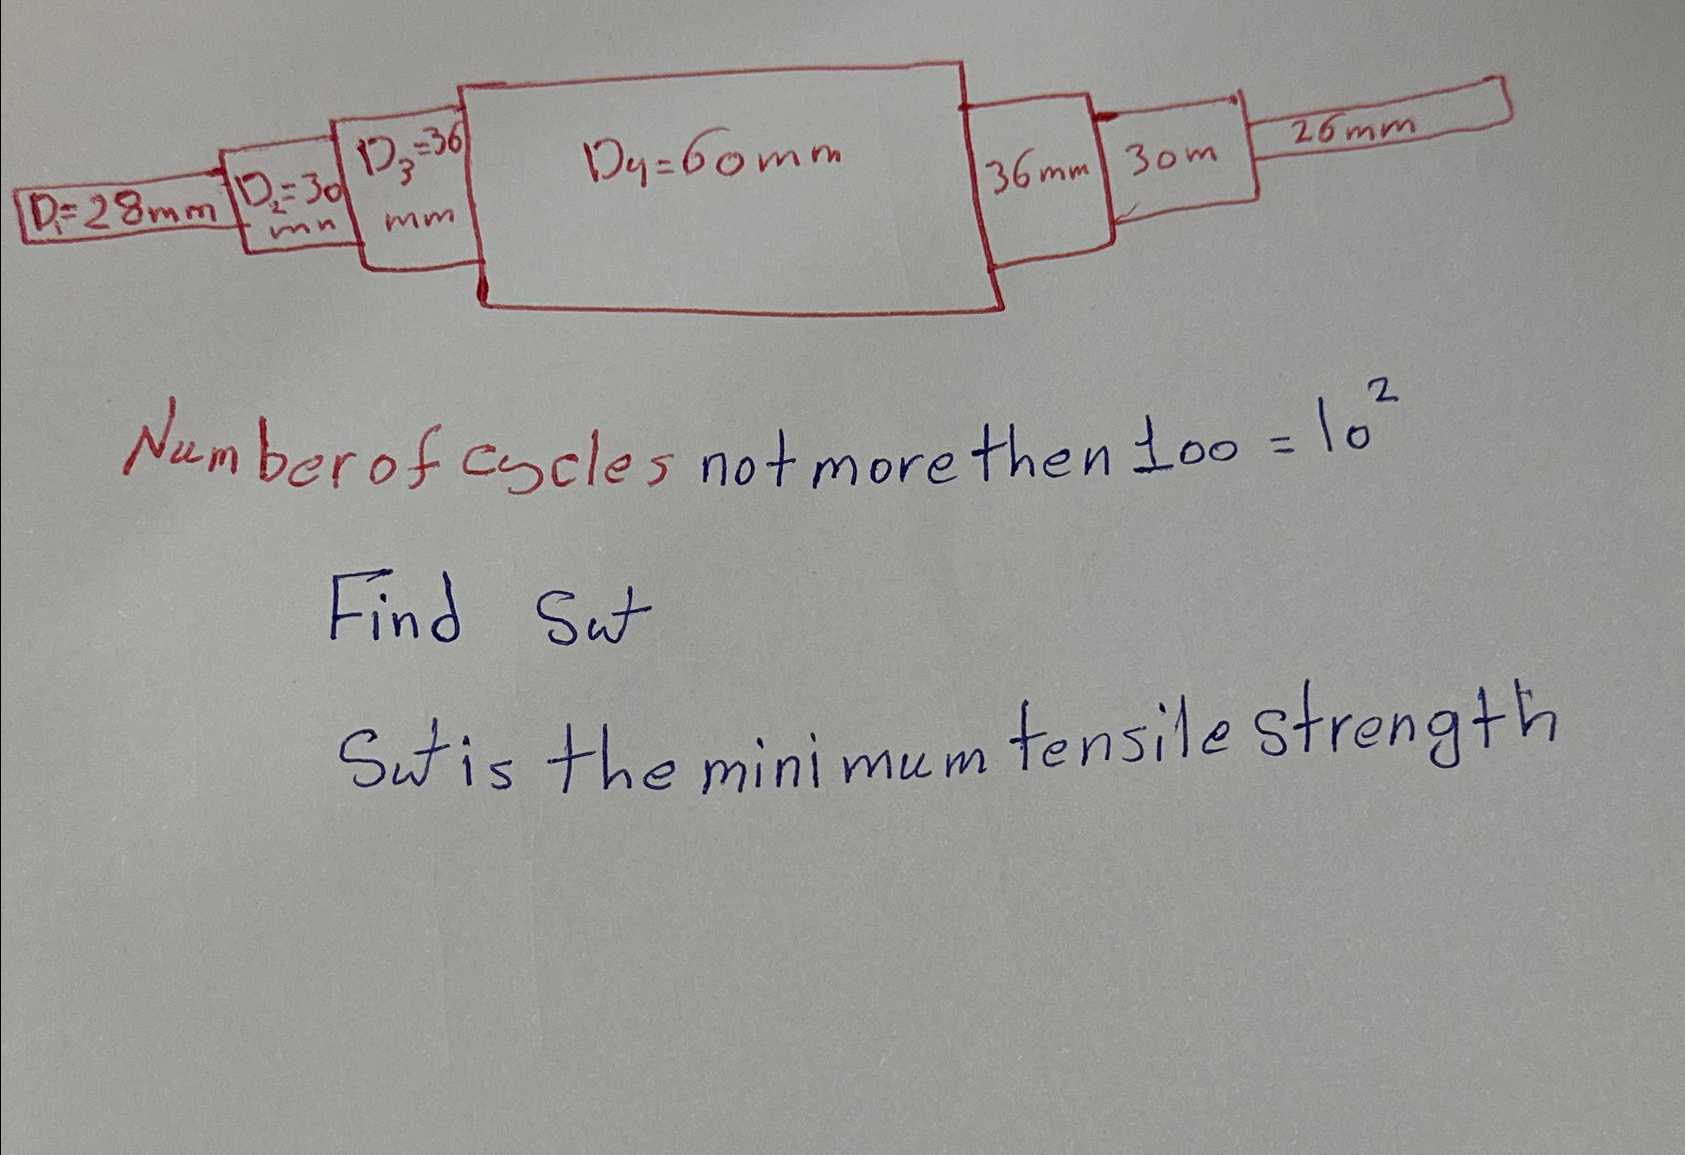 D₁=28mm
D₂=30
mn
D₃=36
mm
D4=60mm
36mm
30m
26mm
Number of cycles not more then 100 = 10²
Find Sut
Sut is the minimum tensile strength